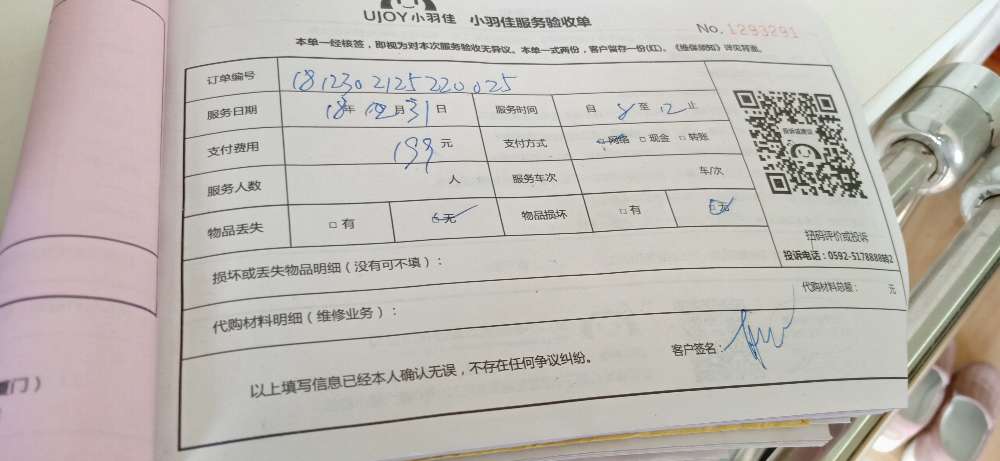 UJOY小羽佳 小羽佳服务验收单
No. 1293291
本单一经核签，即视为对本次服务验收无异议。本单一式两份，客户留存一份(红)。《维保须知》详见背面。
订单编号 1812302125220025
服务日期 18年12月31日 服务时间 自 8 至 12 止
支付费用 199元 支付方式 □网络 □现金 □转账
服务人数 人 服务车次 车/次
物品丢失 □有 □无 物品损坏 □有 □无
投诉或建议
扫码评价或投诉
损坏或丢失物品明细（没有可不填）：
代购材料明细（维修业务）： 代购材料总额： 元
以上填写信息已经本人确认无误，不存在任何争议纠纷。 客户签名：
门）